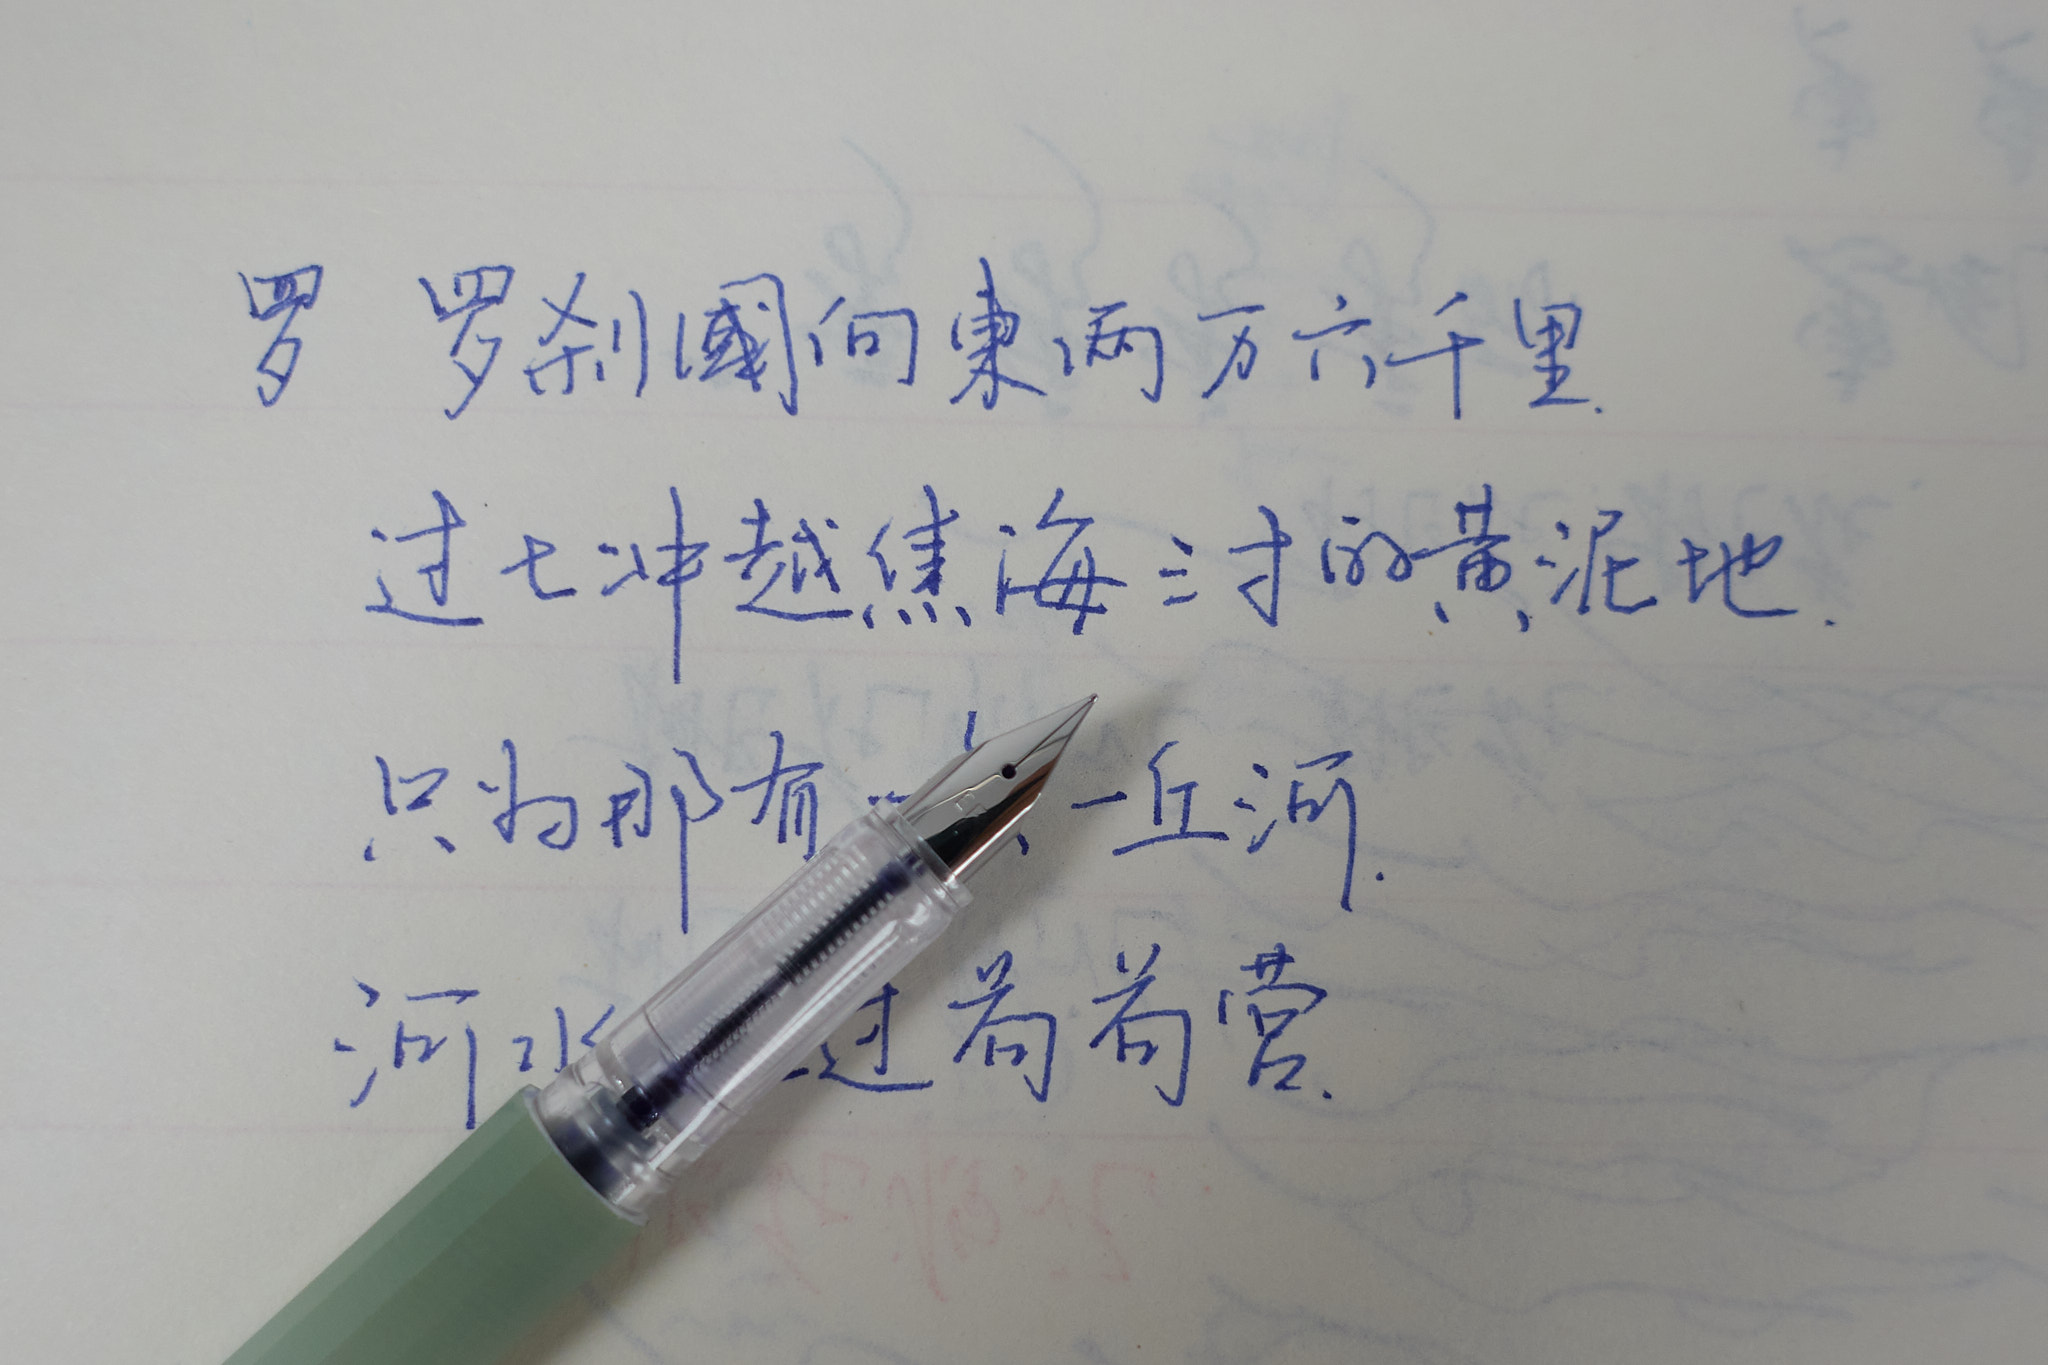 罗 罗刹國向東两万六千里.
过七冲越焦海三寸的黄泥地.
只为那有一 一丘河.
河水 过苟苟营.